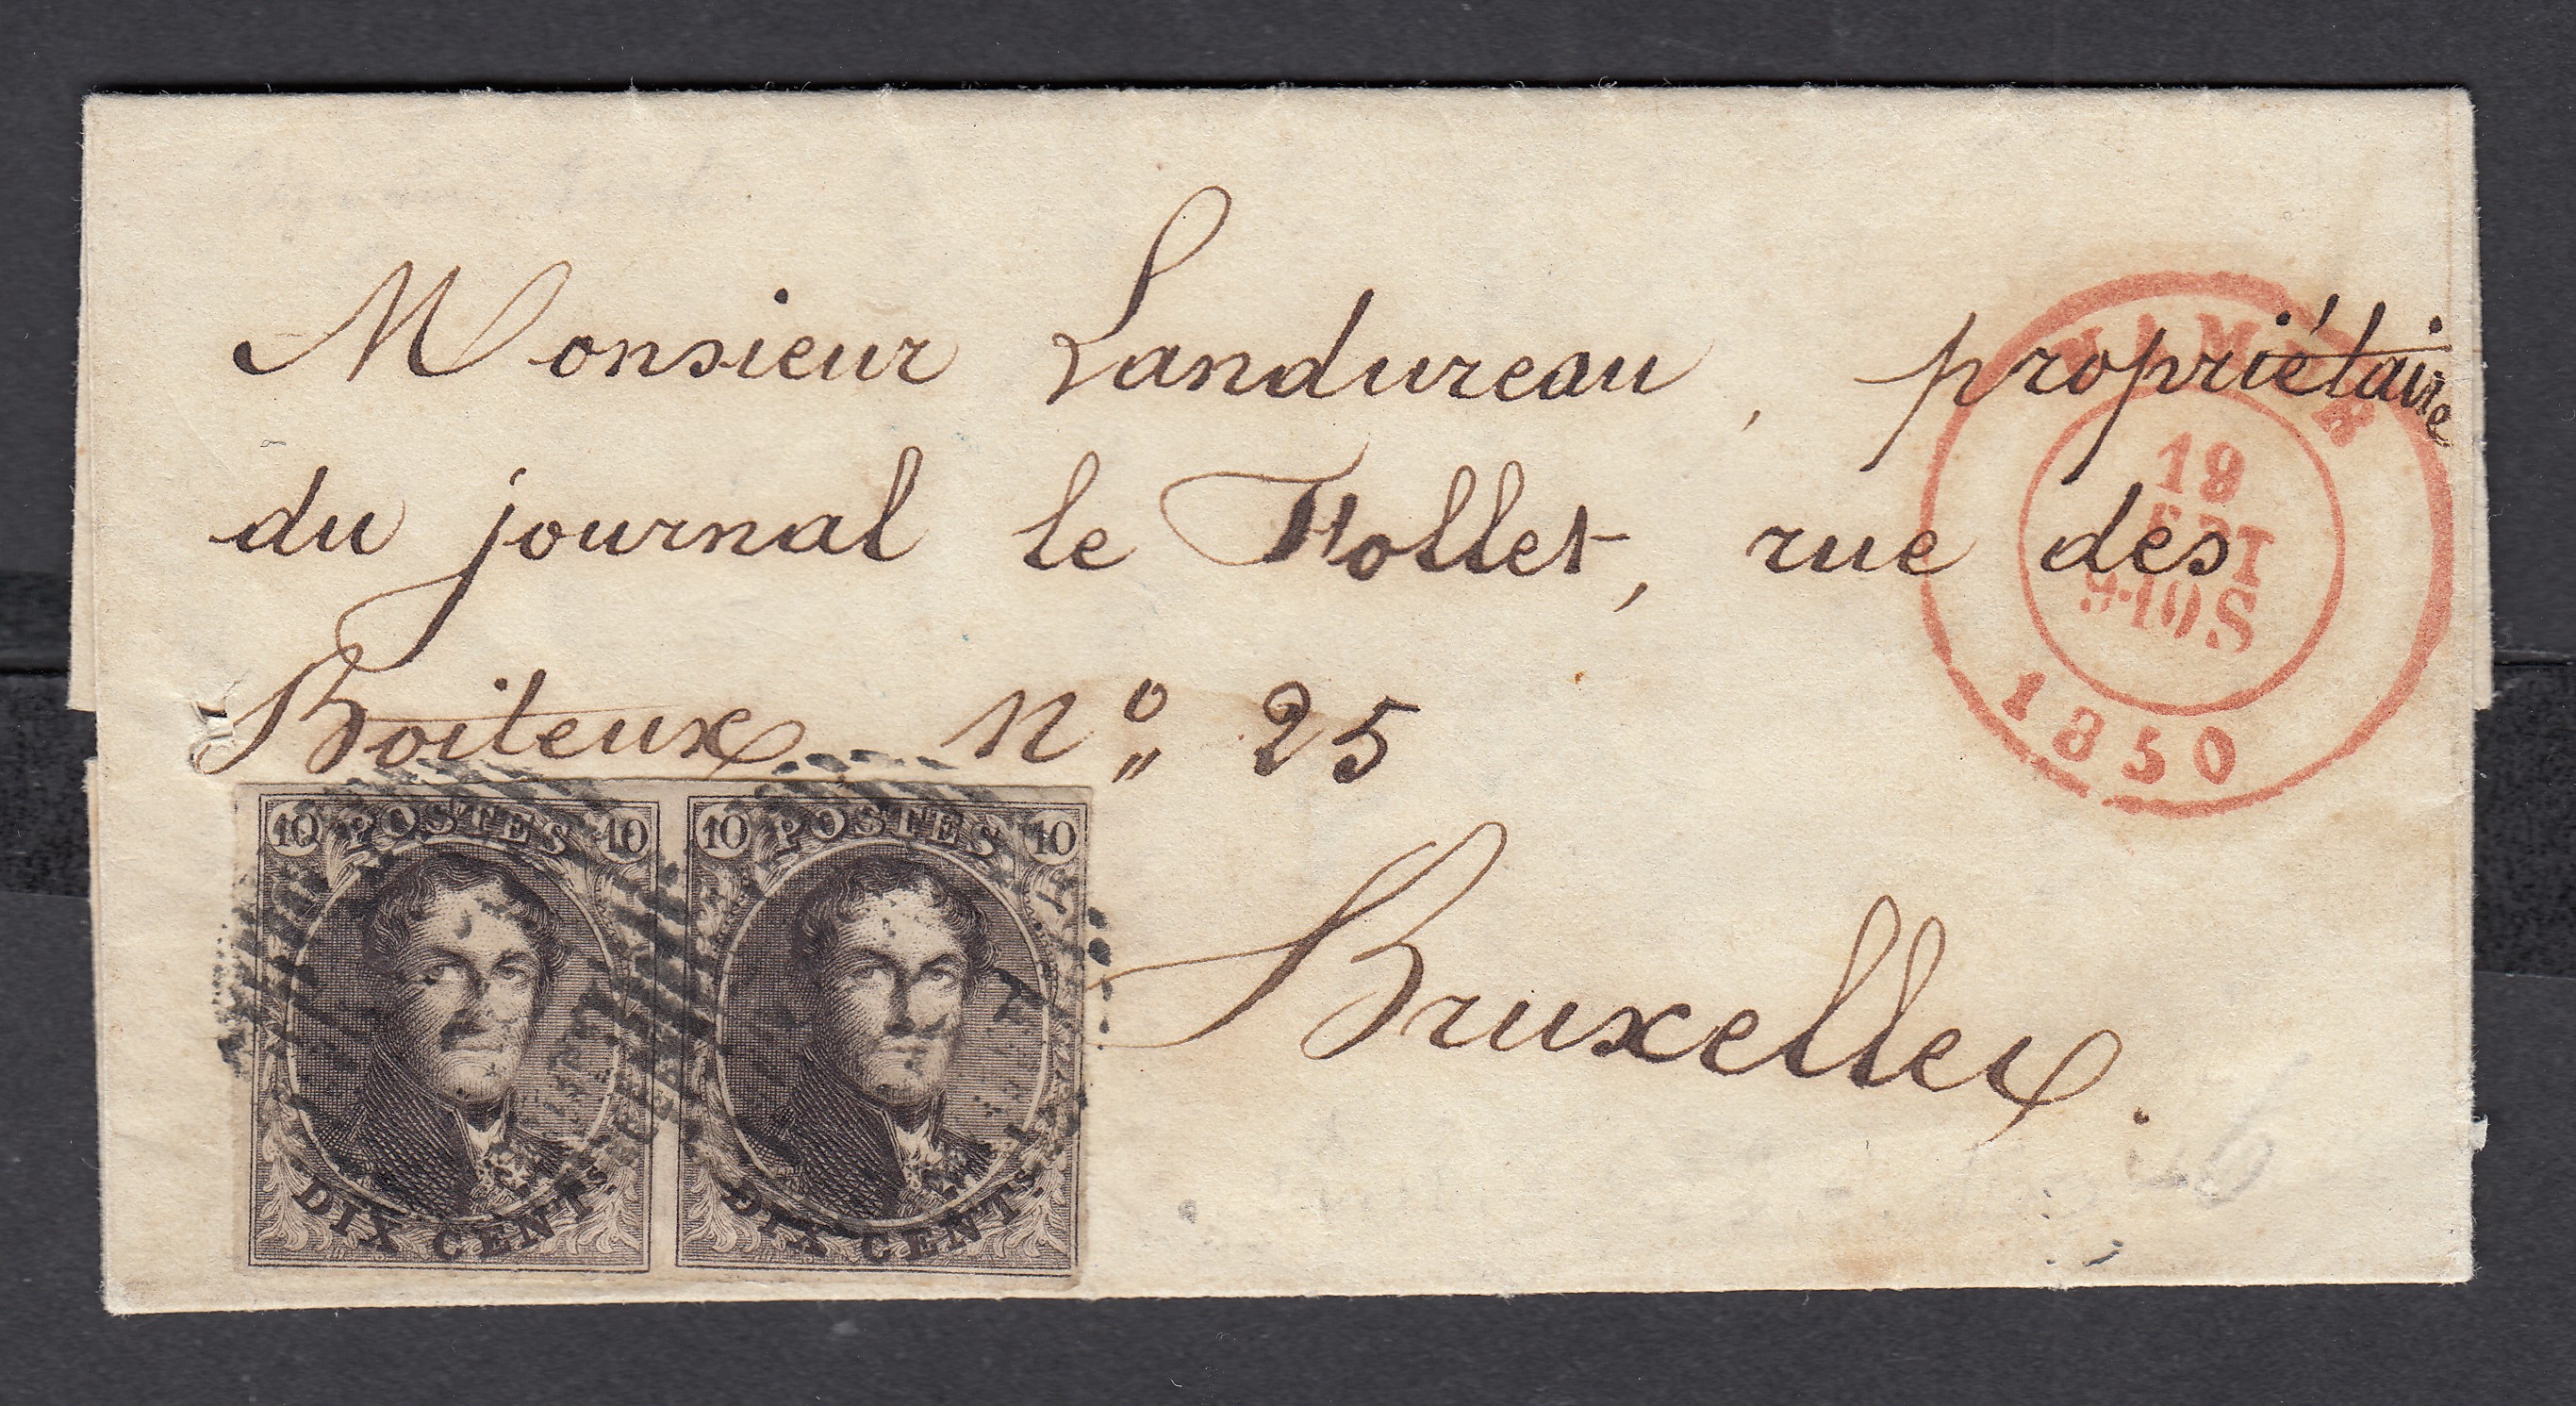 Monsieur Landureau, propriétaire
du journal le Follet, rue des
Boiteux n° 25
Bruxelles.
NAMUR
19
9-10S
1850
10 POSTES 10
DIX CENTS.
10 POSTES 10
DIX CENTS.